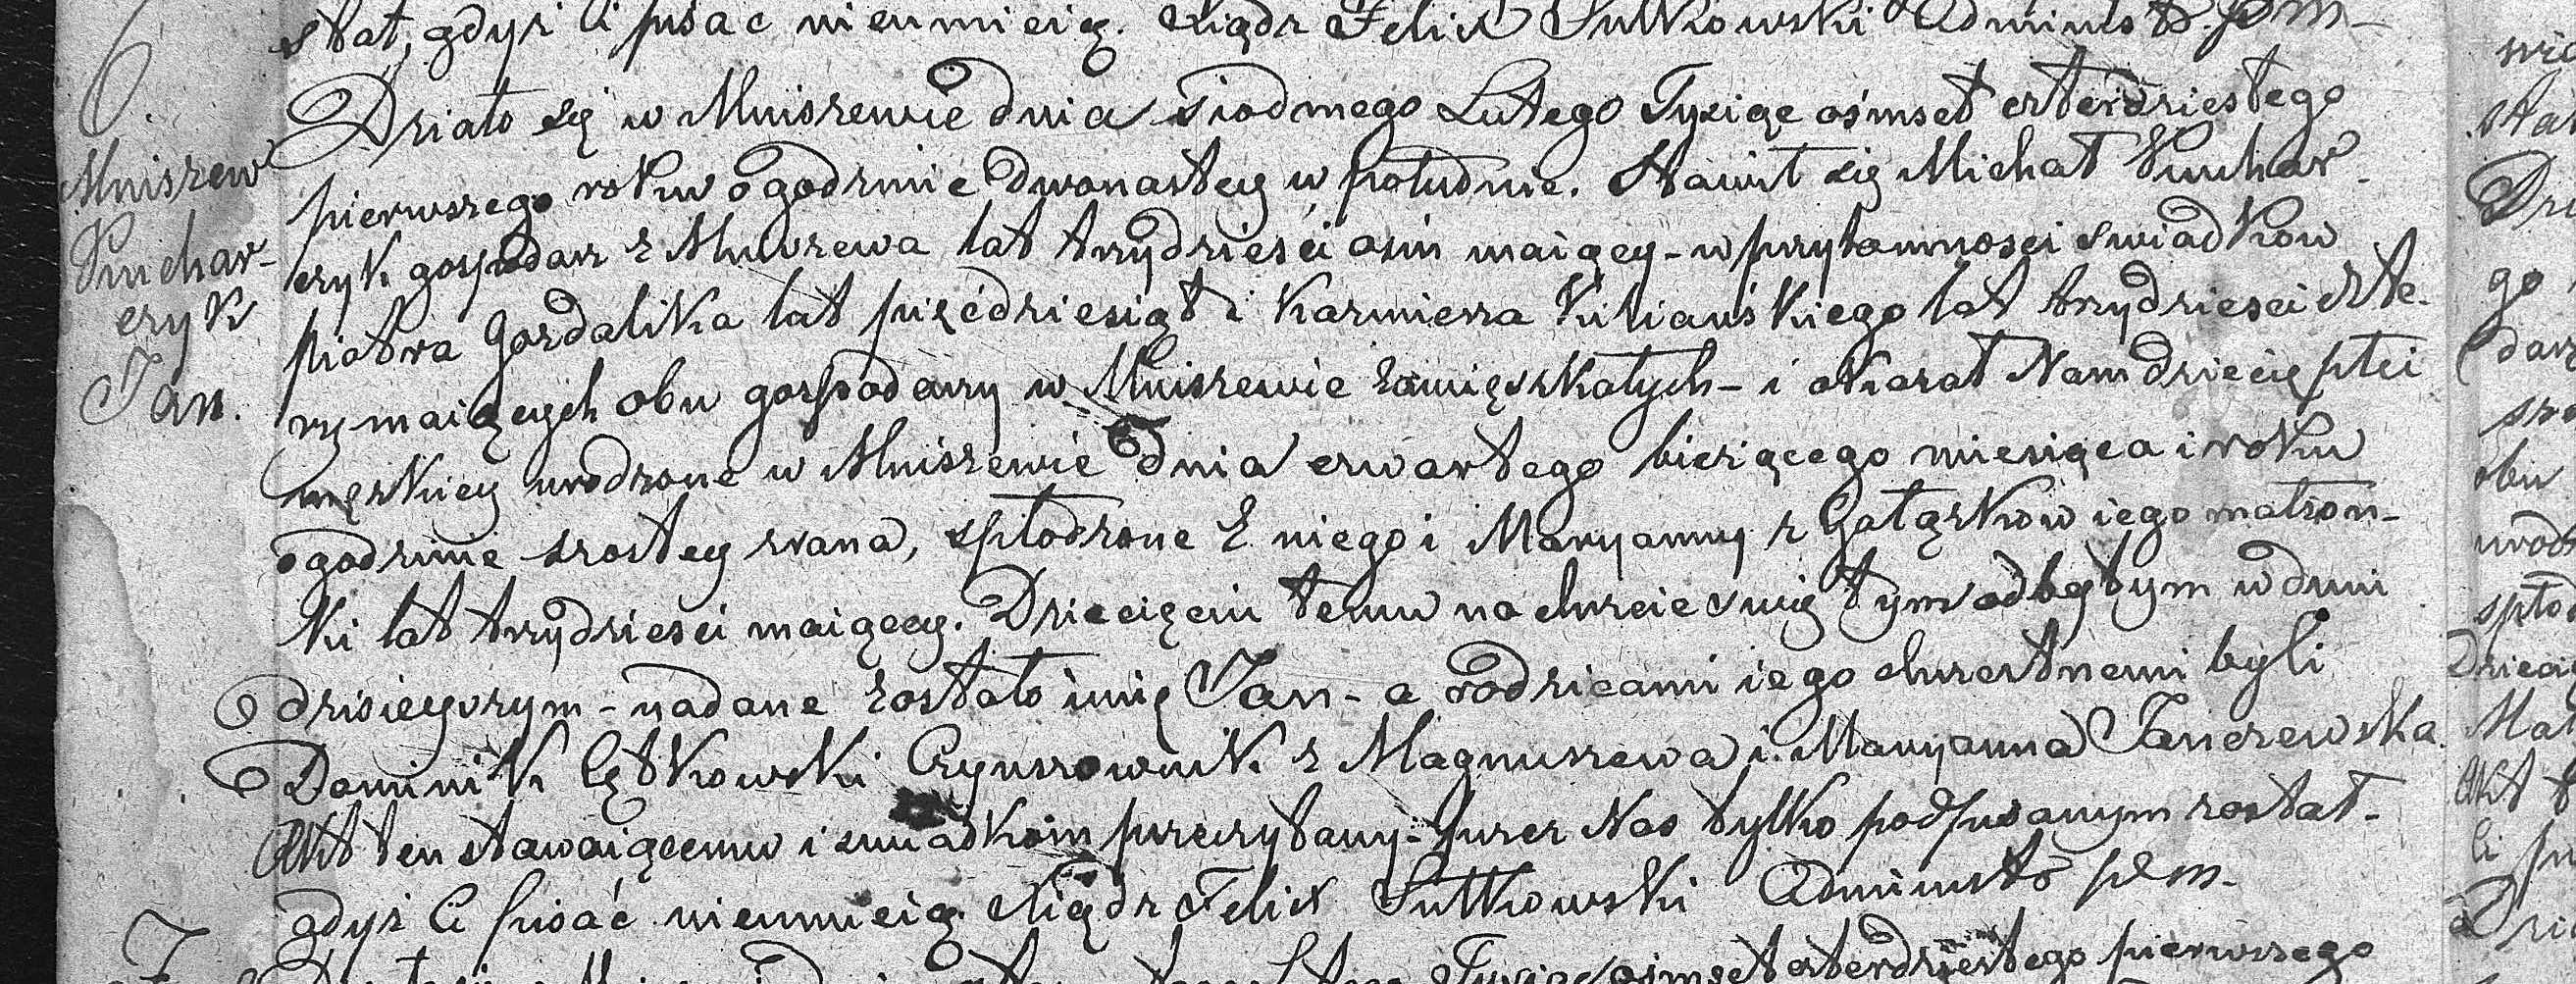 stał, gdyż Ci pisać nieumieią. Xiądz Felix Sutkowski Administr. P. M.
6.
Mniszew
Kuchar-
czyk
Jan.
Działo się w Mniszewie dnia siodmego Lutego Tysiąc ośmset czterdziestego
pierwszego roku o godzinie dwonastey w południe. Stawił się Michał Kuchar-
czyk gospodarz z Mniszewa lat trzydzieści osm maiący - w przytomności swiadków
Piotra Gozdalika lat pięćdziesiąt i Kazmierza Kiliańskiego lat trzydziesci czte-
ry maiących obu gospodarzy w Mniszewie zamięszkałych - i okazał Nam dziecię płci
męzkiey urodzone w Mniszewie dnia czwartego bieżącego miesiąca i roku
o godzinie szostey zrana, spłodzone z niego i Maryanny z Gałązków iego małżon-
ki lat trzydziesci maiącey. Dziecięciu temu na chrzcie swiętym odbytym w dniu
dzisieyszym - nadane zostało imię Jan - a rodzicami iego chrzestnemi byli
Dominik Cętkowski Czynszownik z Magnuszewa i Maryanna Janczewska.
Akt ten stawaiącemu i swiadkóm przeczytany. Przez Nas tylko podpisanym został -
gdyż Ci pisać nieumieią. Xiądz Felix Sutkowski Administr P. M.
7
Tysiąc ośmset czterdziestego pierwszego
go
obu
spło
Akt